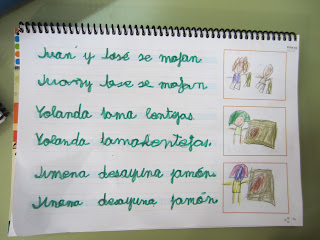 Juan y José se mojan
Juan y Jose se mojan
Yolanda toma lentejas.
Yolanda tomalentejas.
Jimena desayuna jamón.
Jimena desayuna jamón.